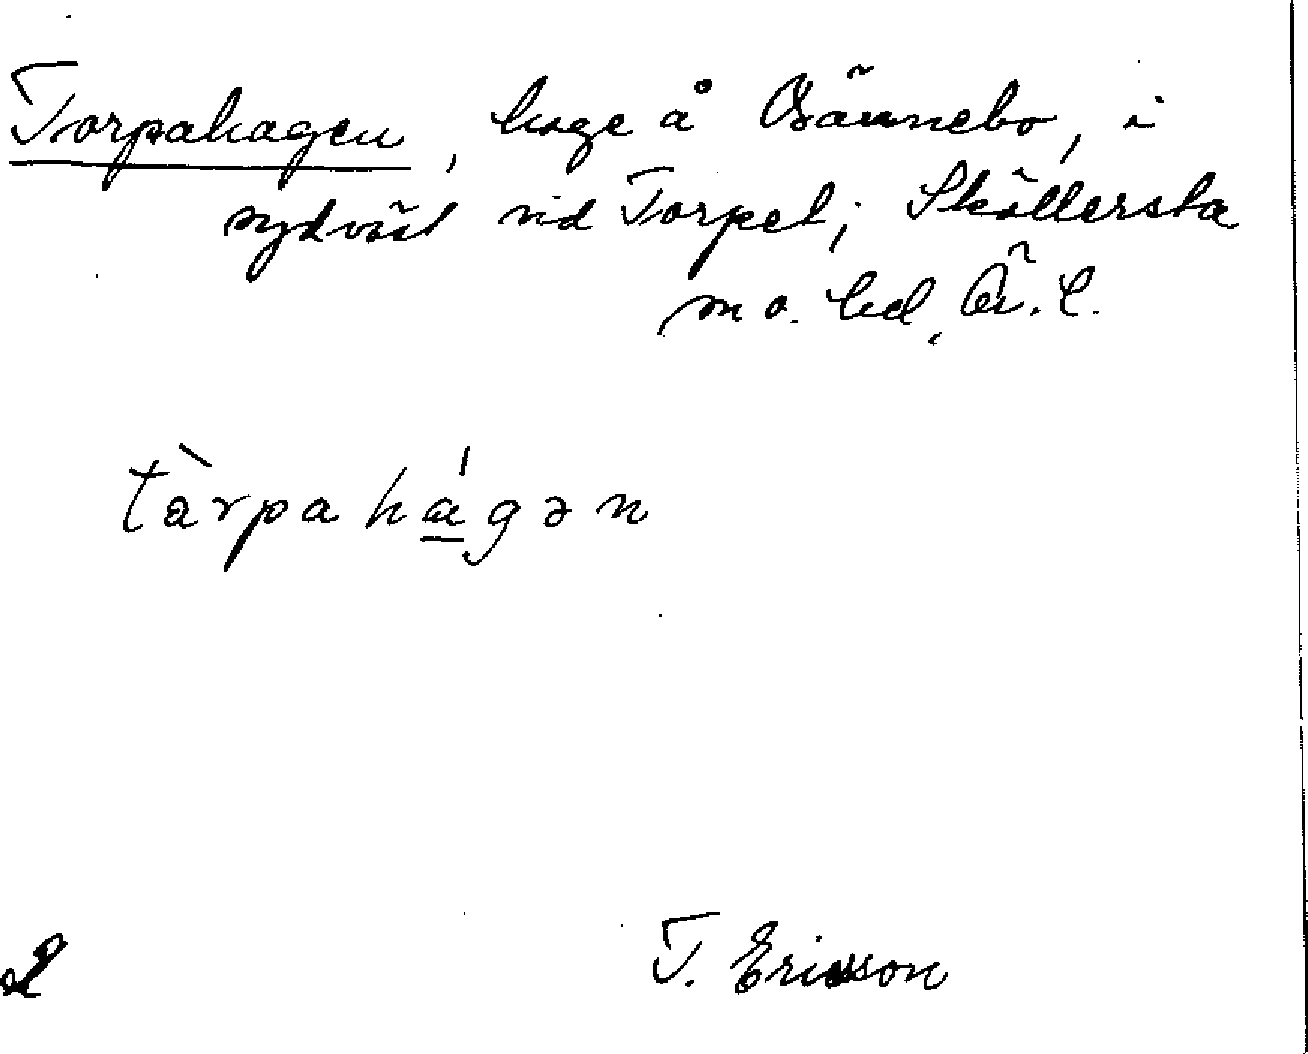 Torpahagen, hage å Bännebo, i
sydväst vid Torpet; Sköllersta
m o. hd, Ö. l.
tàrpahágən
T. Ericsson